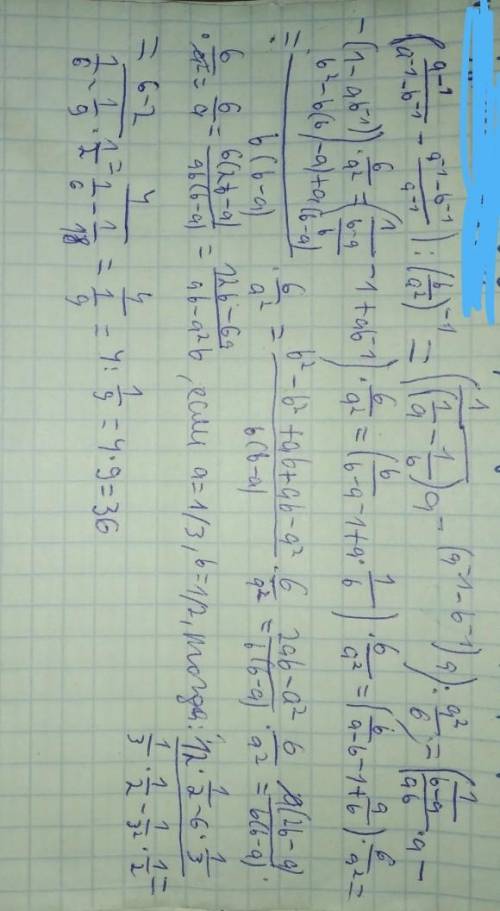 (a⁻¹/(a⁻¹-b⁻¹) - (a⁻¹-b⁻¹)/a⁻¹) : (b/a²)⁻¹ = (1/((1/a - 1/b)a) - (a⁻¹-b⁻¹)a) · a²/6 = (1/((b-a)/ab · a) -
-(1-ab⁻¹)) · 6/a² = (1/((b-a)/b) -1+ab⁻¹) · 6/a² = (b/(b-a) -1+a·1/b) · 6/a² = (b/(a-b) -1+a/b) · 6/a² =
= (b²-b(b-a)+a(b-a))/(b(b-a)) · 6/a² = (b²-b²+ab+ab-a²)/(b(b-a)) · 6/a² = (2ab-a²)/(b(b-a)) · 6/a² = a(2b-a)/(b(b-a)) ·
· 6/a² = 6/a = 6(2b-a)/(ab(b-a)) = (12b-6a)/(ab-a²b), если a=1/3, b=1/2, тогда: (12·1/2-6·1/3)/(1/3·1/2-1/3²·1/2) =
= (6-2)/(1/6-1/9·1/2) = 4/(1/6-1/18) = 4/(1/9) = 4:1/9 = 4·9=36